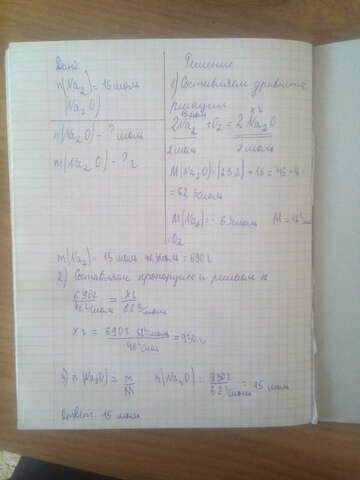 Дано
n(Na₂) = 15 моль
(Na₂O)
n(Na₂O) - ? моль
m(Na₂O) - ? г
Решение
1) Составляем уравнение
реакции
15 моль x г
2Na₂ + O₂ = 2Na₂O
2 моль 2 моль
M(Na₂O) = (23·2) + 16 = 46 + 16 =
= 62 г/моль
M(Na₂) =
O₂
m(Na₂) = 15 моль · 46 г/моль = 690 г
2) Составляем пропорцию и решаем
690 г = x г
46 г/моль 62 г/моль
x г = 690 г · 62 г/моль = 930 г
46 г/моль
3) n(Na₂O) = m n(Na₂O) = 930 г = 15 моль
M 62 г/моль
Ответ: 15 моль